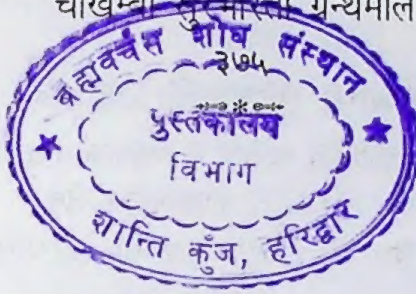 चौखम्बा सुरभारती ग्रन्थमाला
३७५
ब्रह्मवर्चस शोध संस्थान
पुस्तकालय
विभाग
शान्ति कुँज, हरिद्वार